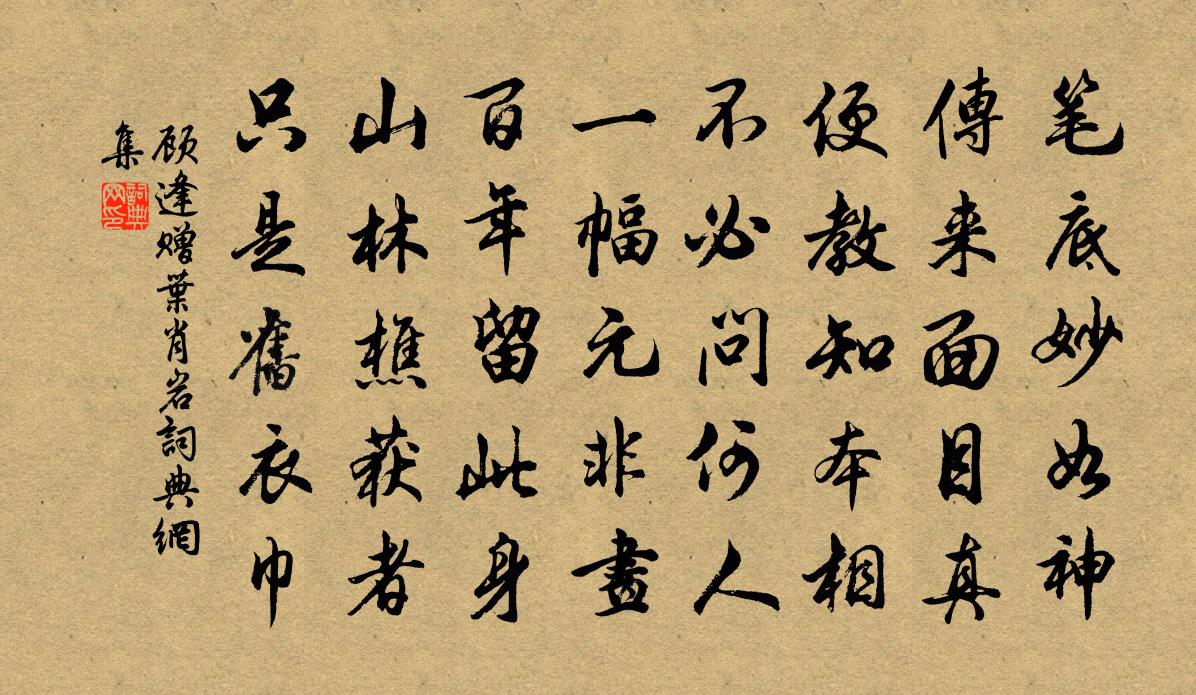 笔底妙如神
傳来面目真
便教知本相
不必问何人
一幅元非畫
百年留此身
山林樵获者
只是舊衣巾
顾逢赠葉肖岩詞典網
集
詞典网印